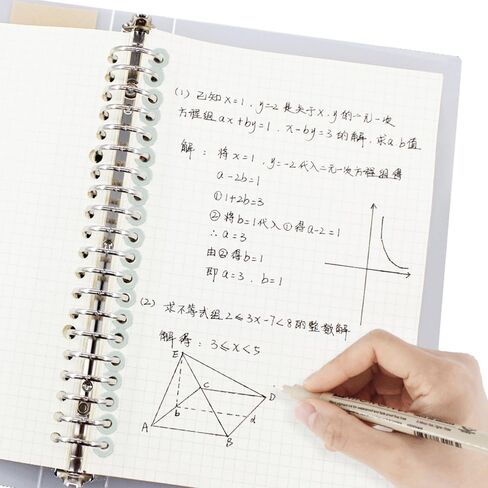 (1) 已知x=1, y=-2是关于x.y的二元一次
方程组ax+by=1, x-by=3的解.求a.b值
解: 将x=1, y=-2代入二元一次方程组得
a-2b=1
①1+2b=3
②将b=1代入①得a-2=1
∴a=3
由②得b=1
即a=3. b=1
(2) 求不等式组2≤3x-7<8的整数解
解得: 3≤x<5
E
C
D
b
d
A
B